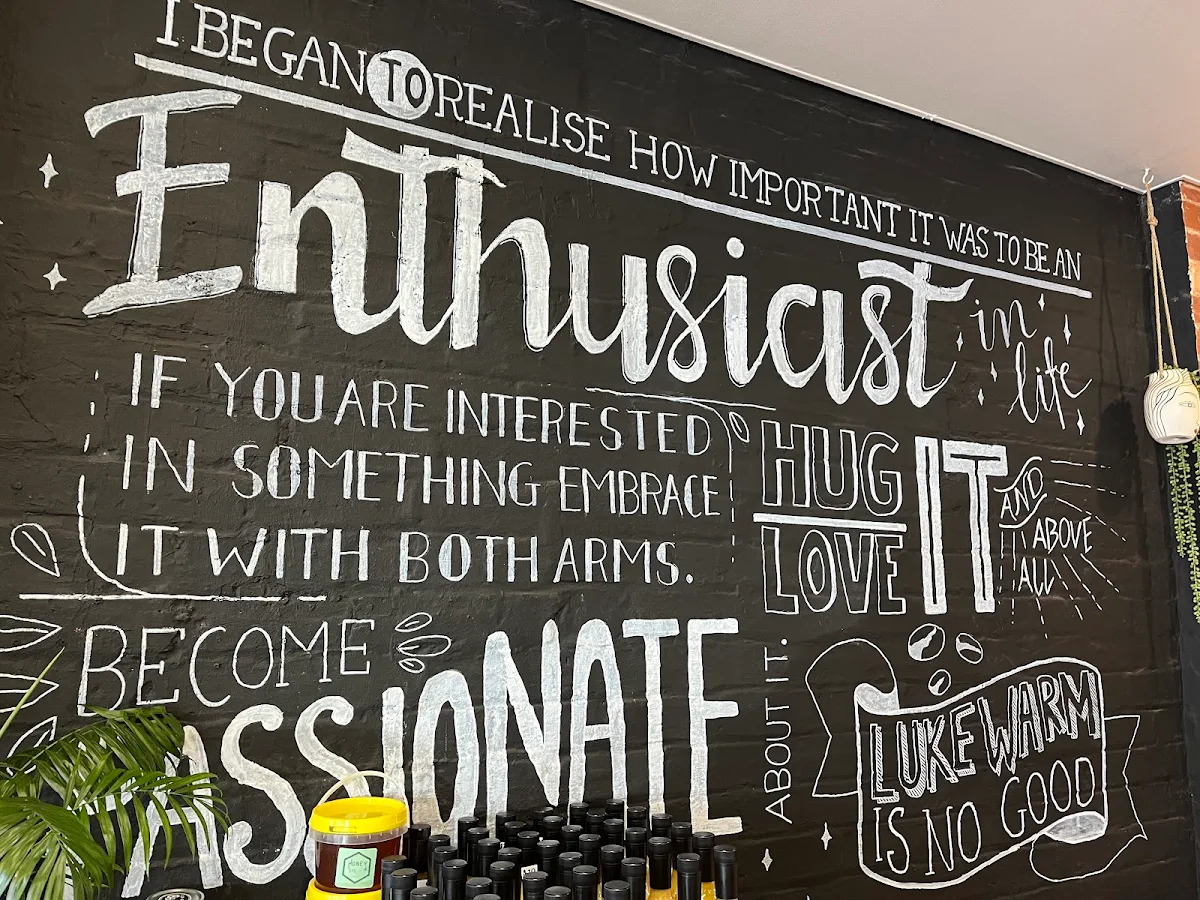 I BEGAN TO REALISE HOW IMPORTANT IT WAS TO BE AN
Enthusiast
in
life
IF YOU ARE INTERESTED
IN SOMETHING EMBRACE
IT WITH BOTH ARMS.
HUG
LOVE
IT
AND
ABOVE
ALL
BECOME
ASSIONATE
ABOUT IT.
LUKE WARM
IS NO GOOD
HONEY